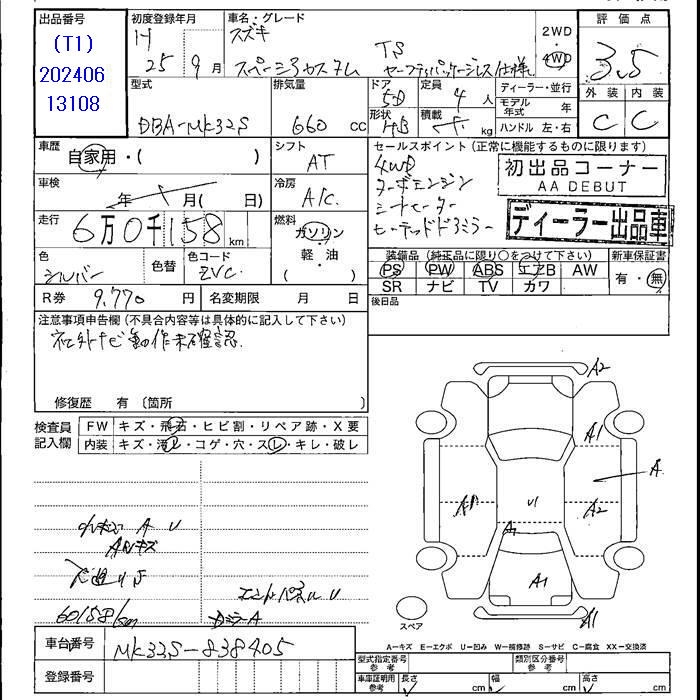 出品番号
(T1)
202406
13108
初度登録年月
H
25年 9月
車名・グレード
スズキ
スペーシアカスタム
TS
セーフティパッケージレス仕様
2WD
4WD
評価点
3.5
外装 内装
C C
型式
DBA-MK32S
排気量
660 cc
ドア
5D
定員
4人
形状
HB
積載
kg
ディーラー・並行
モデル年式 年
ハンドル 左・右
車歴
自家用・( )
シフト
AT
車検
年 月( 日)
冷房
A/C
走行
6万0千158 km
燃料
ガソリン
軽・油
( )
色
シルバー
色替
色コード
ZVC
R券 9,770 円
名変期限 月 日
セールスポイント(正常に機能するものに限ります)
4WD
ターボエンジン
シートヒーター
ヒーテッドドアミラー
初出品コーナー
AA DEBUT
ディーラー出品車
装備品(純正品に限り○をつけて下さい)
PS PW ABS エアB AW
SR ナビ TV カワ
新車保証書
有・無
後日品
注意事項申告欄(不具合内容等は具体的に記入して下さい)
社外ナビ動作未確認
修復歴 有 〔箇所
検査員記入欄
FW キズ・飛石・ヒビ割・リペア跡・X要
内装 キズ・汚レ・コゲ・穴・スレ・キレ・破レ
A U
キズ
60158km
エンドパネル U
ドミラーA
車台番号 MK32S-838405
登録番号
A2
A1
A
A1
U1
A2
A
A1
A1
スペア
A-キズ E-エクボ U-凹み W-補修跡 S-サビ C-腐食 XX-交換済
型式指定番号参考
類別区分番号参考
車庫証明用参考
長さ cm
幅 cm
高さ cm